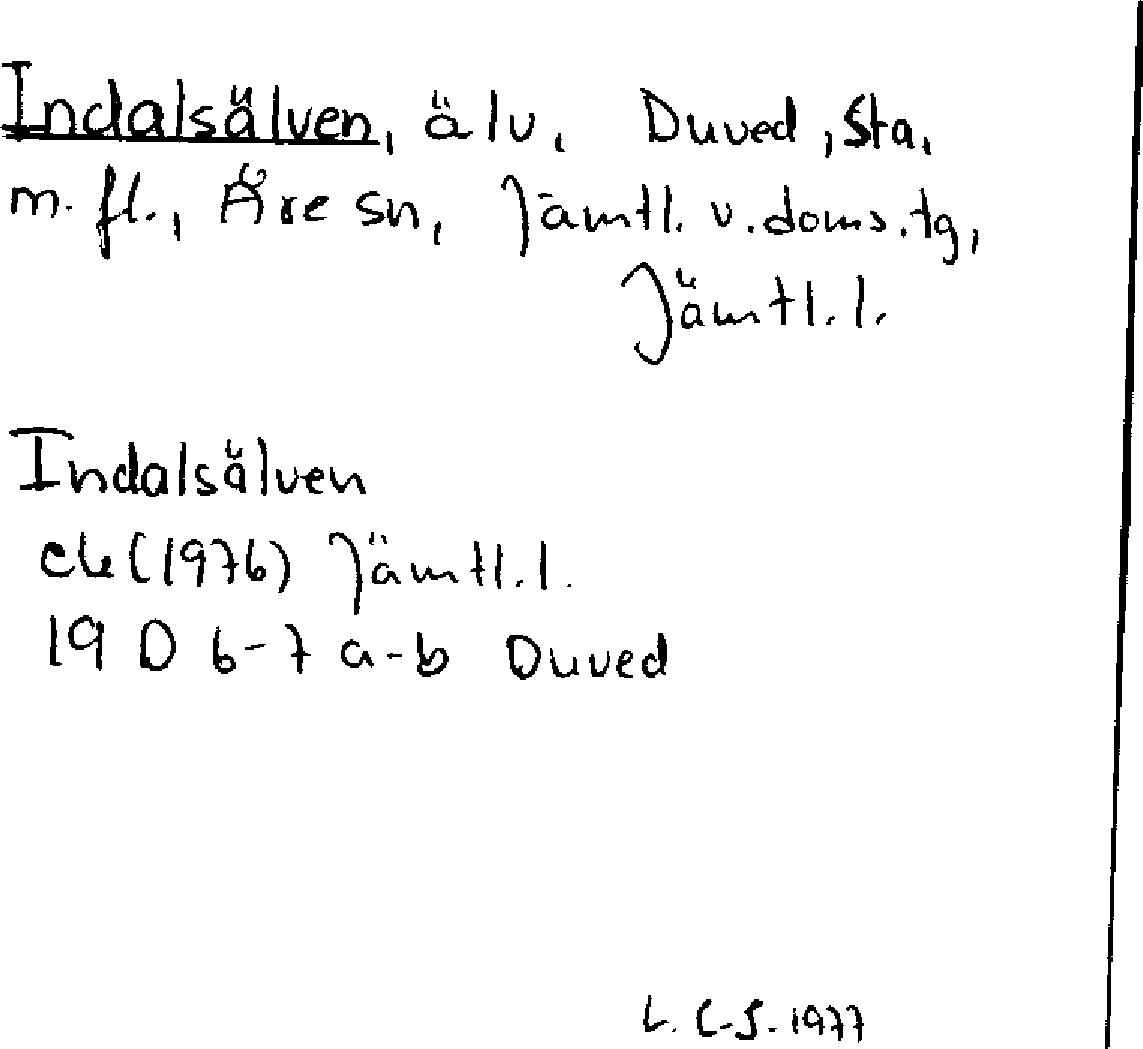 Indalsälven, älv, Duved, Sta,
m. fl., Åre sn, Jämtl. v. doms. tg,
Jämtl. l.
Indalsälven
ek (1976) Jämtl. l.
19 D 6-7 a-b Duved
L. C-S. 1977